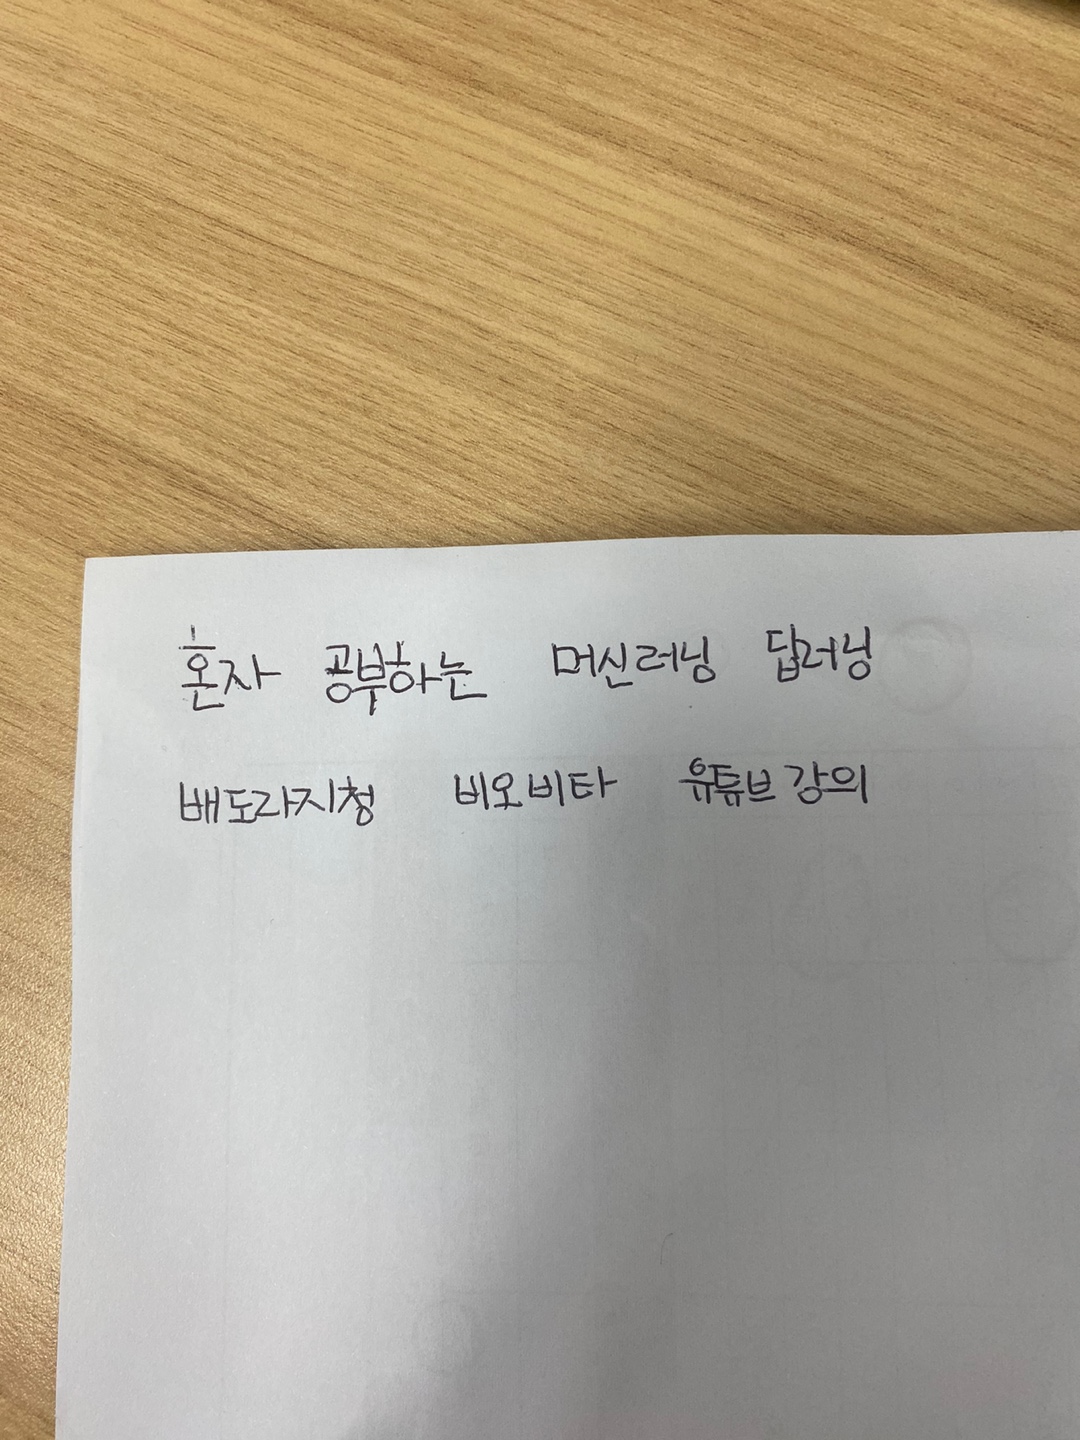 혼자 공부하는 머신러닝 딥러닝
배도라지청 비오비타 유튜브 강의